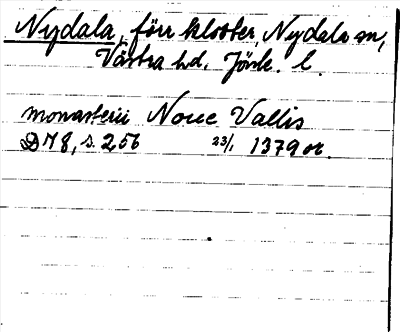 Nydala, förr kloster, Nydala sn,
Västra hd. Jönk. l.
monasterii Noue Vallis
DN 8, s. 256 23/1 1379 or.